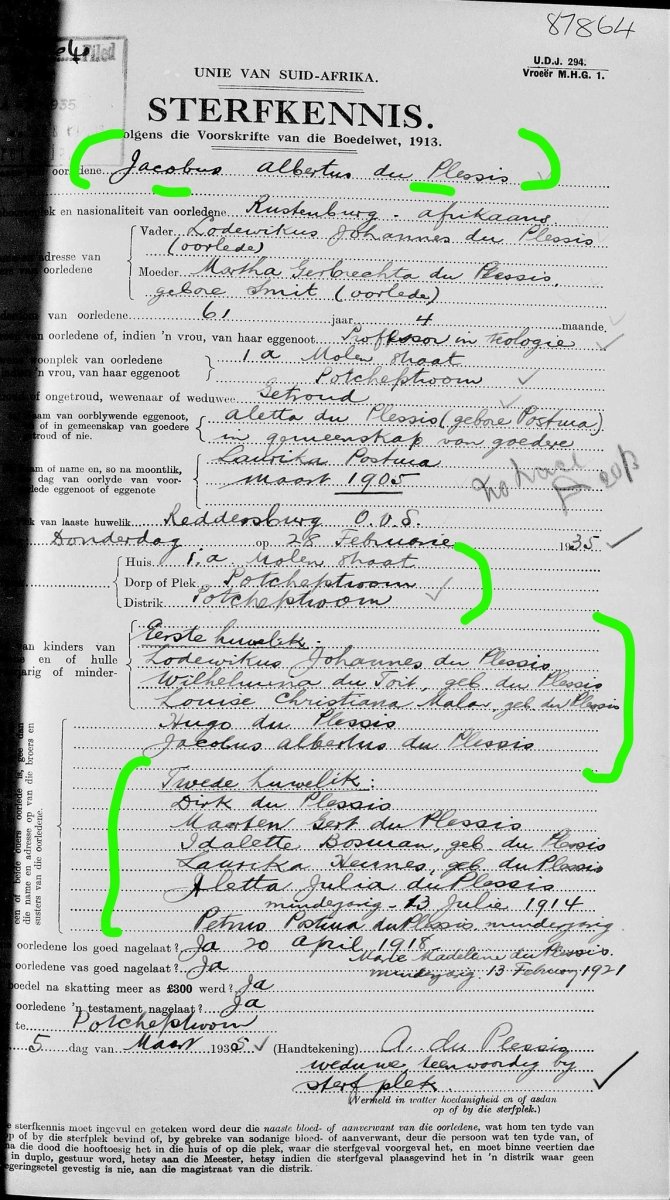 87864
U.D.J. 294.
Vroeër M.H.G. 1.
Filed
UNIE VAN SUID-AFRIKA.
STERFKENNIS.
olgens die Voorskrifte van die Boedelwet, 1913.
oorledene Jacobus Albertus du Plessis
en nasionaliteit van oorledene Rustenburg - Afrikaans
Vader Lodewikus Johannes du Plessis
(oorlede)
adresse van
van oorledene
Moeder Martha Gerbrechta du Plessis,
gebore Smit (oorlede)
van oorledene 61 jaar 4 maande.
van oorledene of, indien 'n vrou, van haar eggenoot Professor in Teologie
woonplek van oorledene
'n vrou, van haar eggenoot
1a Molen Straat
Potchefstroom
of ongetroud, wewenaar of weduwee Getroud
van oorblywende eggenoot,
of in gemeenskap van goedere
troud of nie.
Aletta du Plessis (gebore Postma)
in gemeenskap van goedere
of name en, so na moontlik,
dag van oorlyde van voor-
lede eggenoot of eggenote
Laurika Postma
Maart 1905
van laaste huwelik Reddersburg O.V.S.
Donderdag op 28 Februarie 1935
Huis 1a Molen Straat
Dorp of Plek Potchefstroom
Distrik Potchefstroom
kinders van
en of hulle
arig of minder-
Eerste huwelik:
Lodewikus Johannes du Plessis
Wilhelmina du Toit, geb. du Plessis
Louise Christiana Malan, geb du Plessis
Hugo du Plessis
Jacobus Albertus du Plessis
een of beide ouers oorlede is, gee dan
die name en adresse op van die broers en
susters van die oorledene
Twede huwelik:
Dirk du Plessis
Maarten Gert du Plessis
Idalette Bosman, geb. du Plessis
Laurika Heunes, geb du Plessis
Aletta Julia du Plessis
minderjarig - 13 Julie 1914
Petrus Postma du Plessis minderjarig
oorledene los goed nagelaat? Ja 20 April 1918
Marie Madeleine du Plessis
oorledene vas goed nagelaat? Ja minderjarig 13 February 1921
boedel na skatting meer as £300 werd? Ja
oorledene 'n testament nagelaat? Ja
te Potchefstroom
5 dag van Maart 1935 (Handtekening) A. du Plessis
weduwe, teenwoordig by
sterfplek.
(Vermeld in watter hoedanigheid en of asdan
op of by die sterfplek.)
sterfkennis moet ingevul en geteken word deur die naaste bloed- of aanverwant van die oorledene, wat hom ten tyde van
op of by die sterfplek bevind of, by gebreke van sodanige bloed- of aanverwant, deur die persoon wat ten tyde van, of
na die dood die hooftoesig het in die huis of op die plek, waar die sterfgeval voorgeval het, en moet binne veertien dae
in duplo, gestuur word, hetsy aan die Meester, hetsy indien die sterfgeval plaasgevind het in 'n distrik waar geen
geringsetel gevestig is nie, aan die magistraat van die distrik.